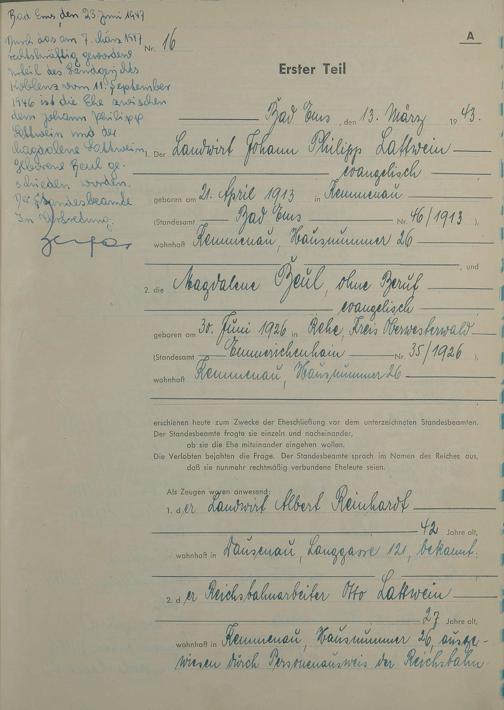 Bad Ems, den 23 Juni 1947
Durch das am 7. März 1947
rechtskräftig gewordene
Urteil des Landgerichts
Koblenz vom 11. September
1946 ist die Ehe zwischen
dem Johann Philipp
Lattwein und der
Magdalene Lattwein,
geborene Beul ge-
schieden worden.
Der Standesbeamte
In Vertretung:
A
Nr. 16
Erster Teil
Bad Ems, den 13. März 1943.
1. Der Landwirt Johann Philipp Lattwein
evangelisch
geboren am 21. April 1913 in Kemmenau
(Standesamt Bad Ems Nr. 46/1913).
wohnhaft Kemmenau, Hausnummer 26
, und
2. die Magdalene Beul, ohne Beruf
evangelisch
geboren am 30. Juni 1926 in Rehe, Kreis Oberwesterwald
(Standesamt Emmerichenhain Nr. 35/1926).
wohnhaft Kemmenau, Hausnummer 26
erschienen heute zum Zwecke der Eheschließung vor dem unterzeichneten Standesbeamten.
Der Standesbeamte fragte sie einzeln und nacheinander,
ob sie die Ehe miteinander eingehen wollen.
Die Verlobten bejahten die Frage. Der Standesbeamte sprach im Namen des Reiches aus,
daß sie nunmehr rechtmäßig verbundene Eheleute seien.
Als Zeugen waren anwesend:
1. der Landwirt Albert Reinhardt
42 Jahre alt,
wohnhaft in Dausenau, Langgasse 121, bekannt.
2. der Reichsbahnarbeiter Otto Lattwein
27 Jahre alt,
wohnhaft in Kemmenau, Hausnummer 26, ausge-
wiesen durch Personenausweis der Reichsbahn.